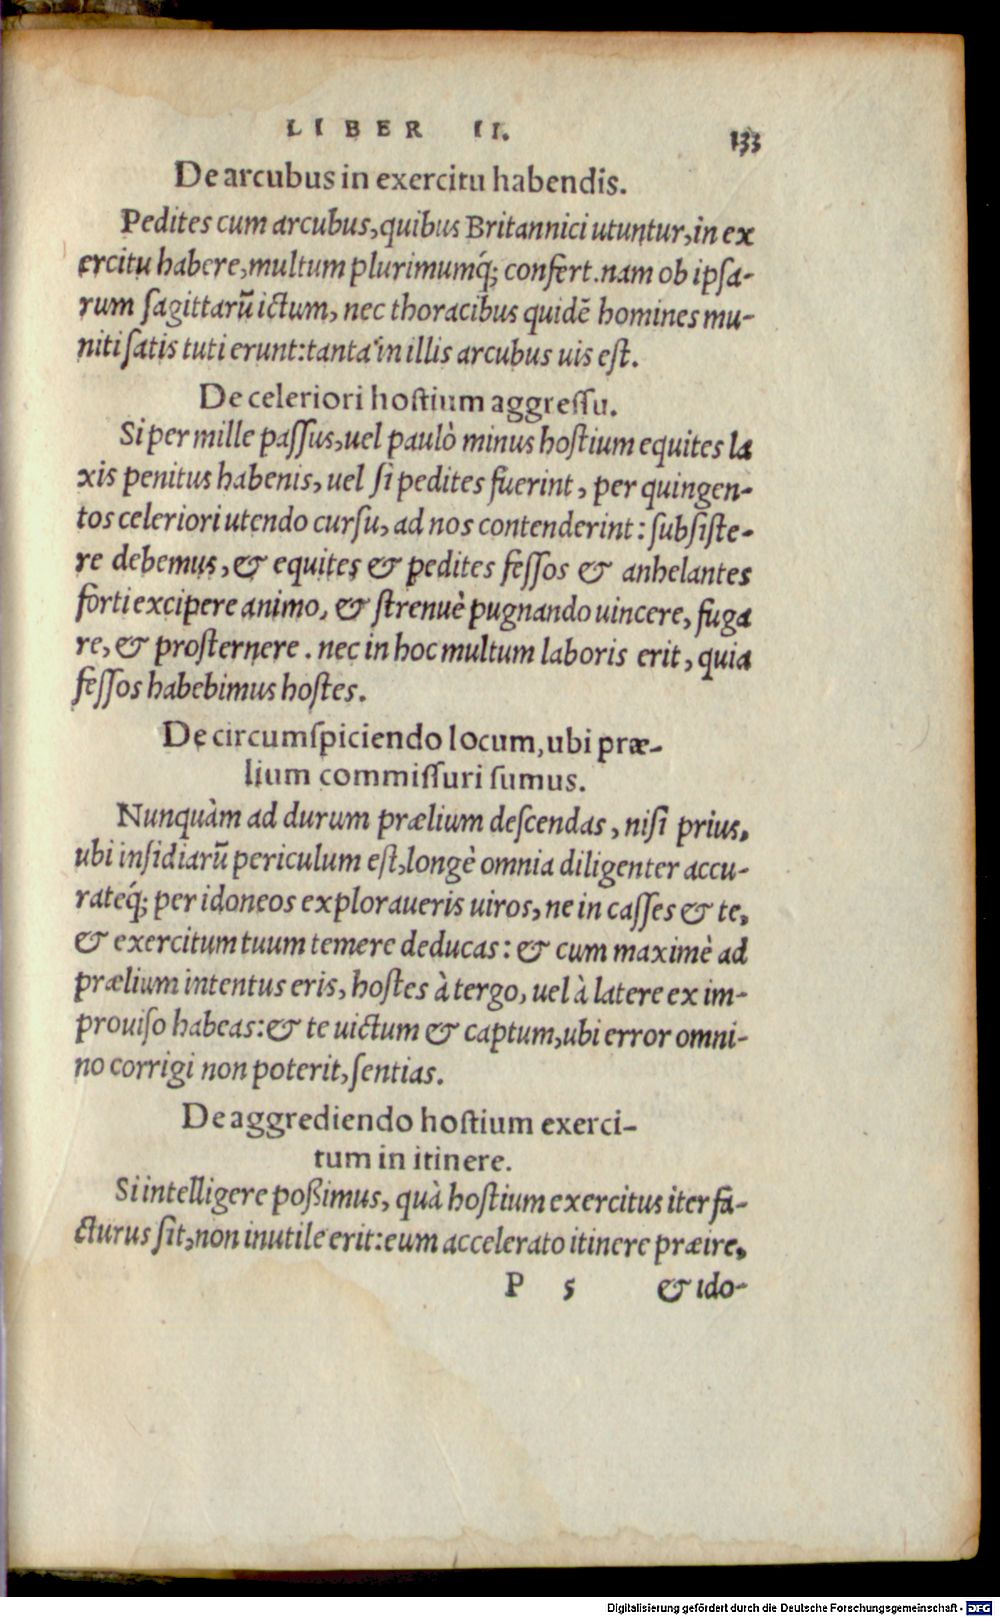 LIBER II. 133
De arcubus in exercitu habendis.
Pedites cum arcubus, quibus Britannici utuntur, in ex
ercitu habere, multum plurimumq́; confert. nam ob ipsa-
rum ſagittarũ ictum, nec thoracibus quidẽ homines mu-
niti ſatis tuti erunt: tanta in illis arcubus uis eſt.
De celeriori hoſtium aggreſſu.
Si per mille paſſus, uel paulò minus hoſtium equites la
xis penitus habenis, uel ſi pedites fuerint, per quingen-
tos celeriori utendo curſu, ad nos contenderint: ſubſiſte-
re debemus, & equites & pedites feſſos & anhelantes
forti excipere animo, & ſtrenuè pugnando uincere, fuga
re, & proſternere. nec in hoc multum laboris erit, quia
feſſos habebimus hoſtes.
De circumſpiciendo locum, ubi præ-
lium commiſſuri ſumus.
Nunquàm ad durum prælium deſcendas, niſi prius,
ubi inſidiarũ periculum eſt, longè omnia diligenter accu-
rateq́; per idoneos exploraueris uiros, ne in caſſes & te,
& exercitum tuum temere deducas: & cum maximè ad
prælium intentus eris, hoſtes à tergo, uel à latere ex im-
prouiſo habeas: & te uictum & captum, ubi error omni-
no corrigi non poterit, ſentias.
De aggrediendo hoſtium exerci-
tum in itinere.
Si intelligere poßimus, quà hoſtium exercitus iter fa-
cturus ſit, non inutile erit: eum accelerato itinere præire,
P 5 & ido-
Digitalisierung gefördert durch die Deutsche Forschungsgemeinschaft - DFG